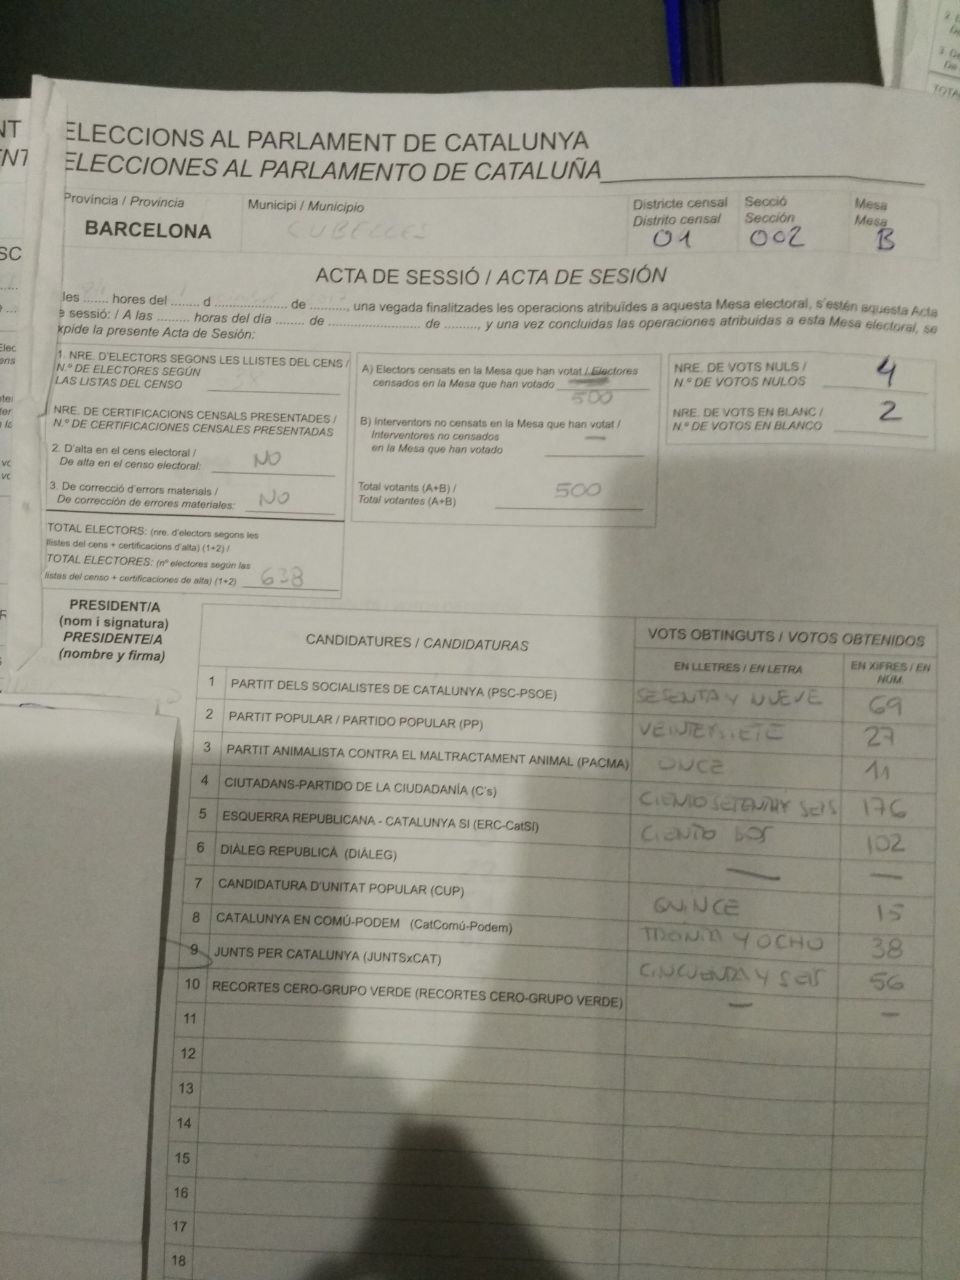 ELECCIONS AL PARLAMENT DE CATALUNYA
ELECCIONES AL PARLAMENTO DE CATALUÑA
Província / Provincia
BARCELONA
Municipi / Municipio
CUBELLES
Districte censal
Distrito censal
01
Secció
Sección
002
Mesa
Mesa
B
ACTA DE SESSIÓ / ACTA DE SESIÓN
les ....... hores del ........ d .................... de .........., una vegada finalitzades les operacions atribuïdes a aquesta Mesa electoral, s'estén aquesta Acta
e sessió: / A las ......... horas del día ........ de ......................... de ........., y una vez concluidas las operaciones atribuidas a esta Mesa electoral, se
xpide la presente Acta de Sesión:
1. NRE. D'ELECTORS SEGONS LES LLISTES DEL CENS /
N.º DE ELECTORES SEGÚN
LAS LISTAS DEL CENSO
NRE. DE CERTIFICACIONS CENSALS PRESENTADES /
N.º DE CERTIFICACIONES CENSALES PRESENTADAS
2. D'alta en el cens electoral /
De alta en el censo electoral: NO
3. De correcció d'errors materials /
De corrección de errores materiales: NO
TOTAL ELECTORS: (nre. d'electors segons les
llistes del cens + certificacions d'alta) (1+2) /
TOTAL ELECTORES: (nº electores según las
listas del censo + certificaciones de alta) (1+2) 638
A) Electors censats en la Mesa que han votat / Electores
censados en la Mesa que han votado
500
B) Interventors no censats en la Mesa que han votat /
Interventores no censados
en la Mesa que han votado
Total votants (A+B) /
Total votantes (A+B)
500
NRE. DE VOTS NULS /
N.º DE VOTOS NULOS 4
NRE. DE VOTS EN BLANC /
N.º DE VOTOS EN BLANCO 2
PRESIDENT/A
(nom i signatura)
PRESIDENTE/A
(nombre y firma)
CANDIDATURES / CANDIDATURAS
VOTS OBTINGUTS / VOTOS OBTENIDOS
EN LLETRES / EN LETRA
EN XIFRES / EN
NÚM.
1 PARTIT DELS SOCIALISTES DE CATALUNYA (PSC-PSOE) SESENTA Y NUEVE 69
2 PARTIT POPULAR / PARTIDO POPULAR (PP) VEINTISIETE 27
3 PARTIT ANIMALISTA CONTRA EL MALTRACTAMENT ANIMAL (PACMA) ONCE 11
4 CIUTADANS-PARTIDO DE LA CIUDADANÍA (C's) CIENTO SETENTA Y SEIS 176
5 ESQUERRA REPUBLICANA - CATALUNYA SI (ERC-CatSI) CIENTO DOS 102
6 DIÀLEG REPUBLICÀ (DIÀLEG) — —
7 CANDIDATURA D'UNITAT POPULAR (CUP) QUINCE 15
8 CATALUNYA EN COMÚ-PODEM (CatComú-Podem) TREINTA Y OCHO 38
9 JUNTS PER CATALUNYA (JUNTSxCAT) CINCUENTA Y SEIS 56
10 RECORTES CERO-GRUPO VERDE (RECORTES CERO-GRUPO VERDE) — —
11
12
13
14
15
16
17
18